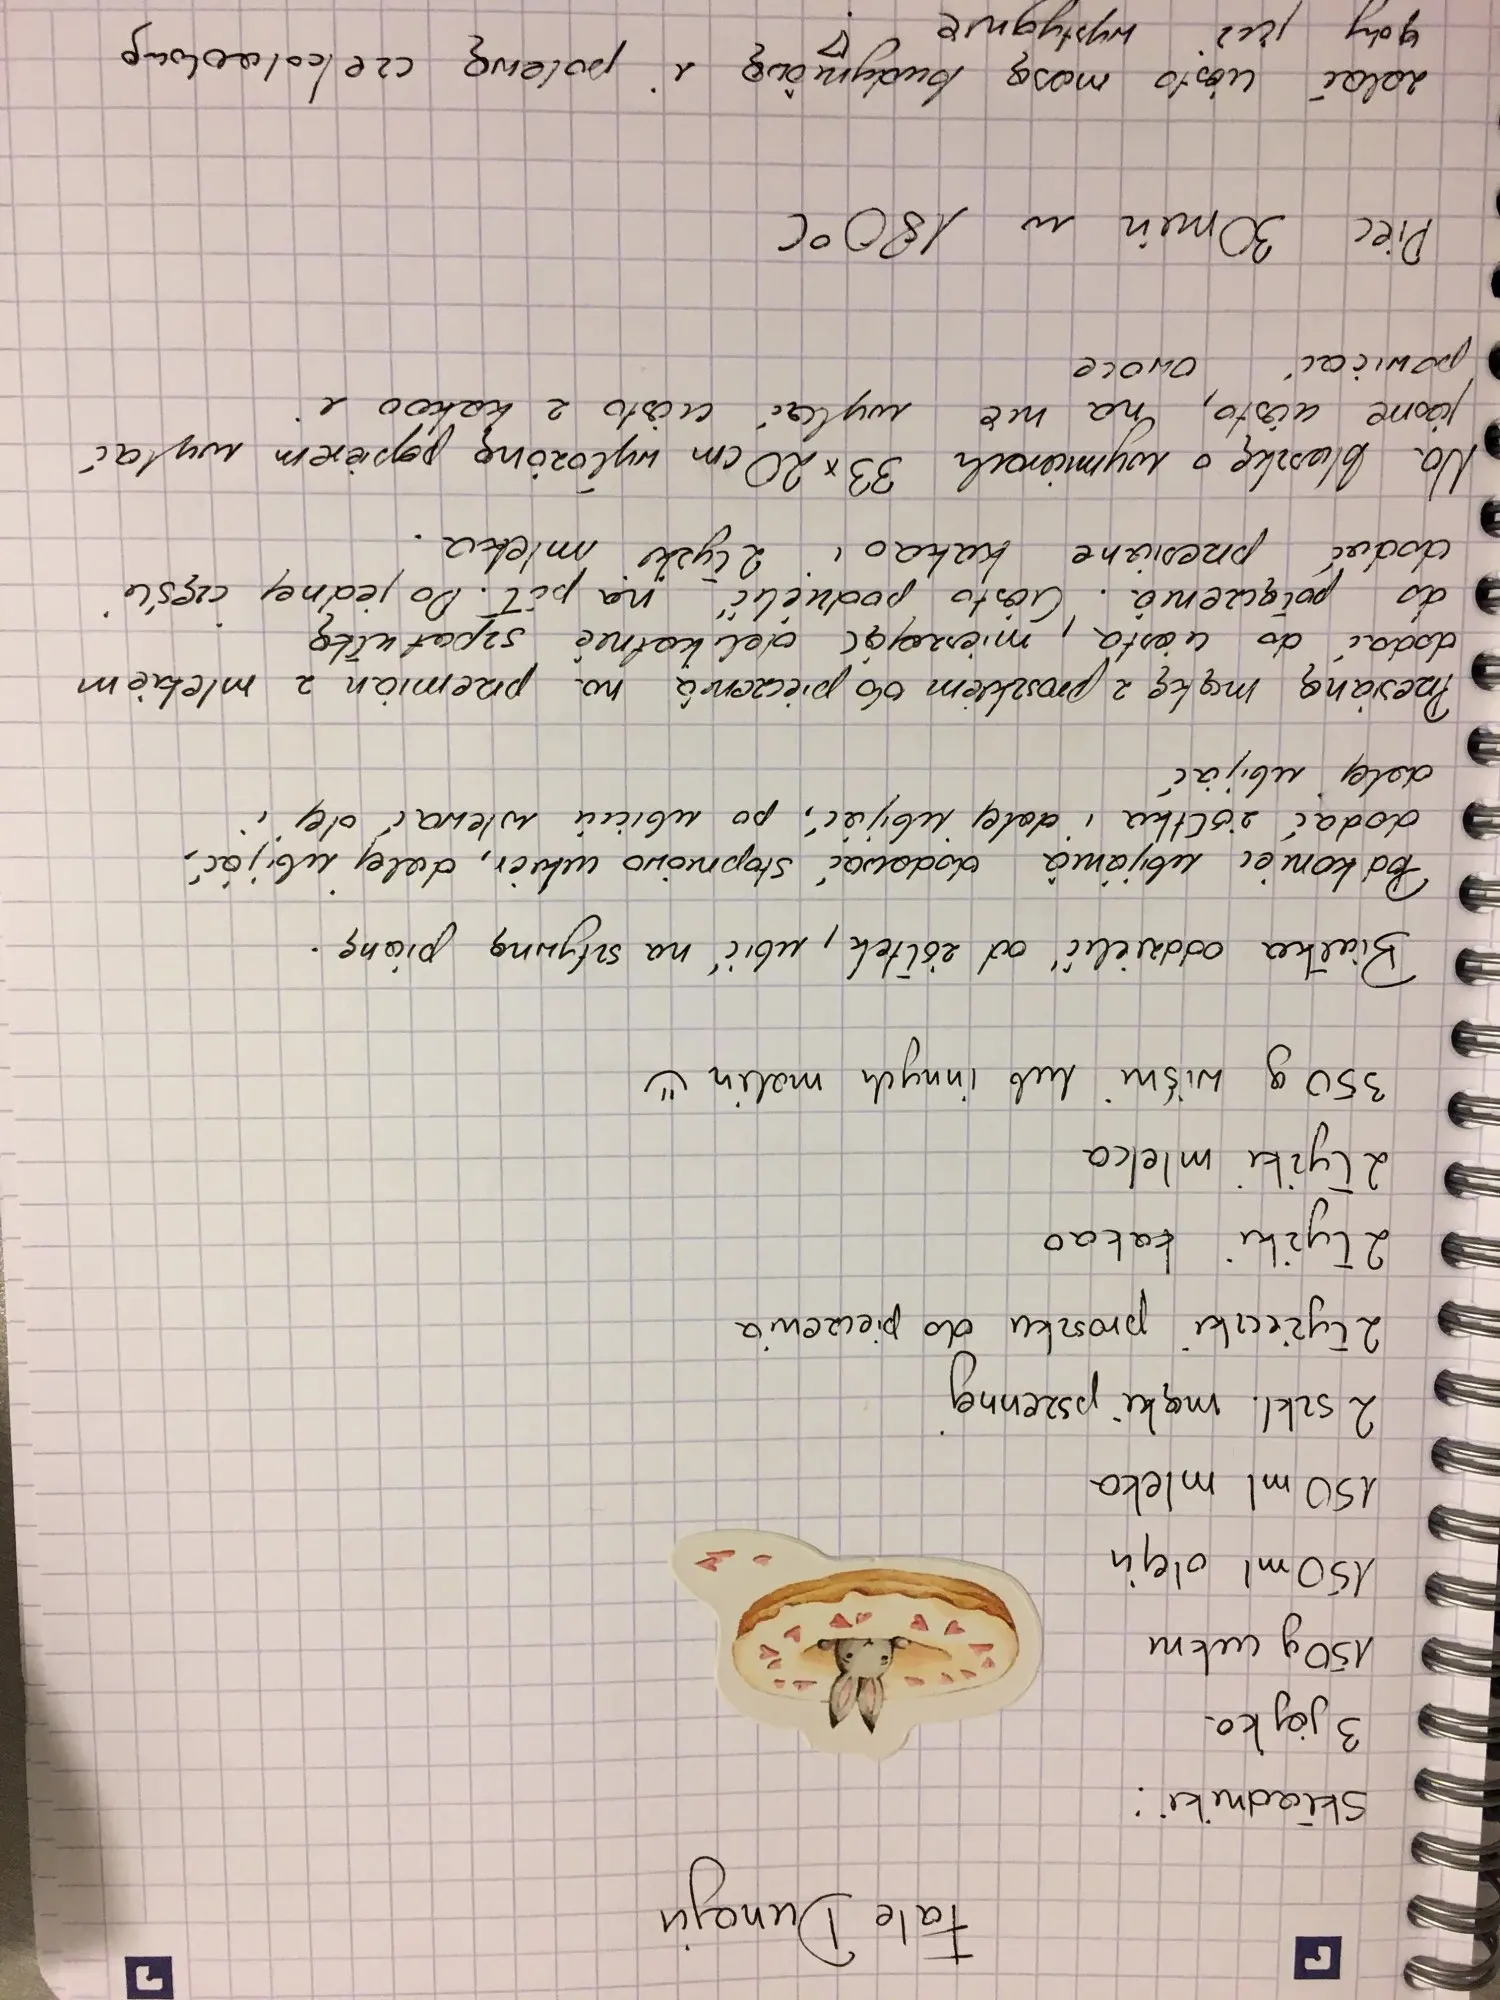 Fale Dunaju
Składniki:
3 jajka
150 g cukru
150 ml oleju
150 ml mleka
2 szkl. mąki pszennej
2 łyżeczki proszku do pieczenia
2 łyżki kakao
2 łyżki mleka
350 g wiśni lub innych malin
Białka oddzielić od żółtek, ubić na sztywną pianę.
Pod koniec ubijania dodawać stopniowo cukier, dalej ubijać,
dodać żółtka i dalej ubijać, po ubiciu wlewać olej i
dalej ubijać
Przesianą mąkę z proszkiem do pieczenia na przemian z mlekiem
dodać do ciasta, mieszając delikatnie szpatułką
do połączenia. Ciasto podzielić na pół. Do jednej części
dodać przesiane kakao i 2 łyżki mleka.
Na blaszkę o wymiarach 33x20 cm wyłożoną papierem wylać
jasne ciasto, na nie wylać ciasto z kakao i
powciskać owoce
Piec 30 min w 180°C
zalać ciasto masą budyniową i polewą czekoladową
gdy już wystygnie